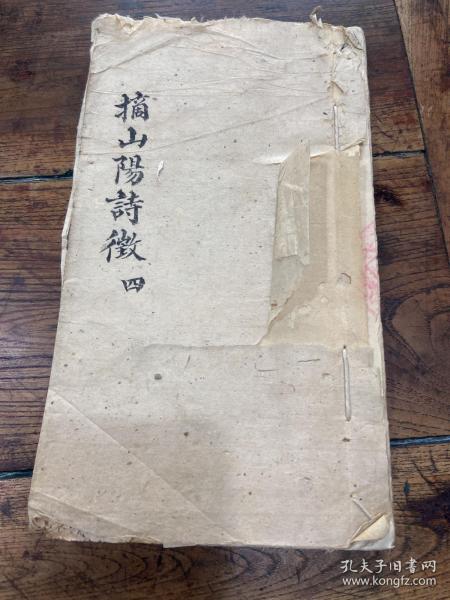 摘山陽詩徵 四
孔夫子旧书网
www.kongfz.com